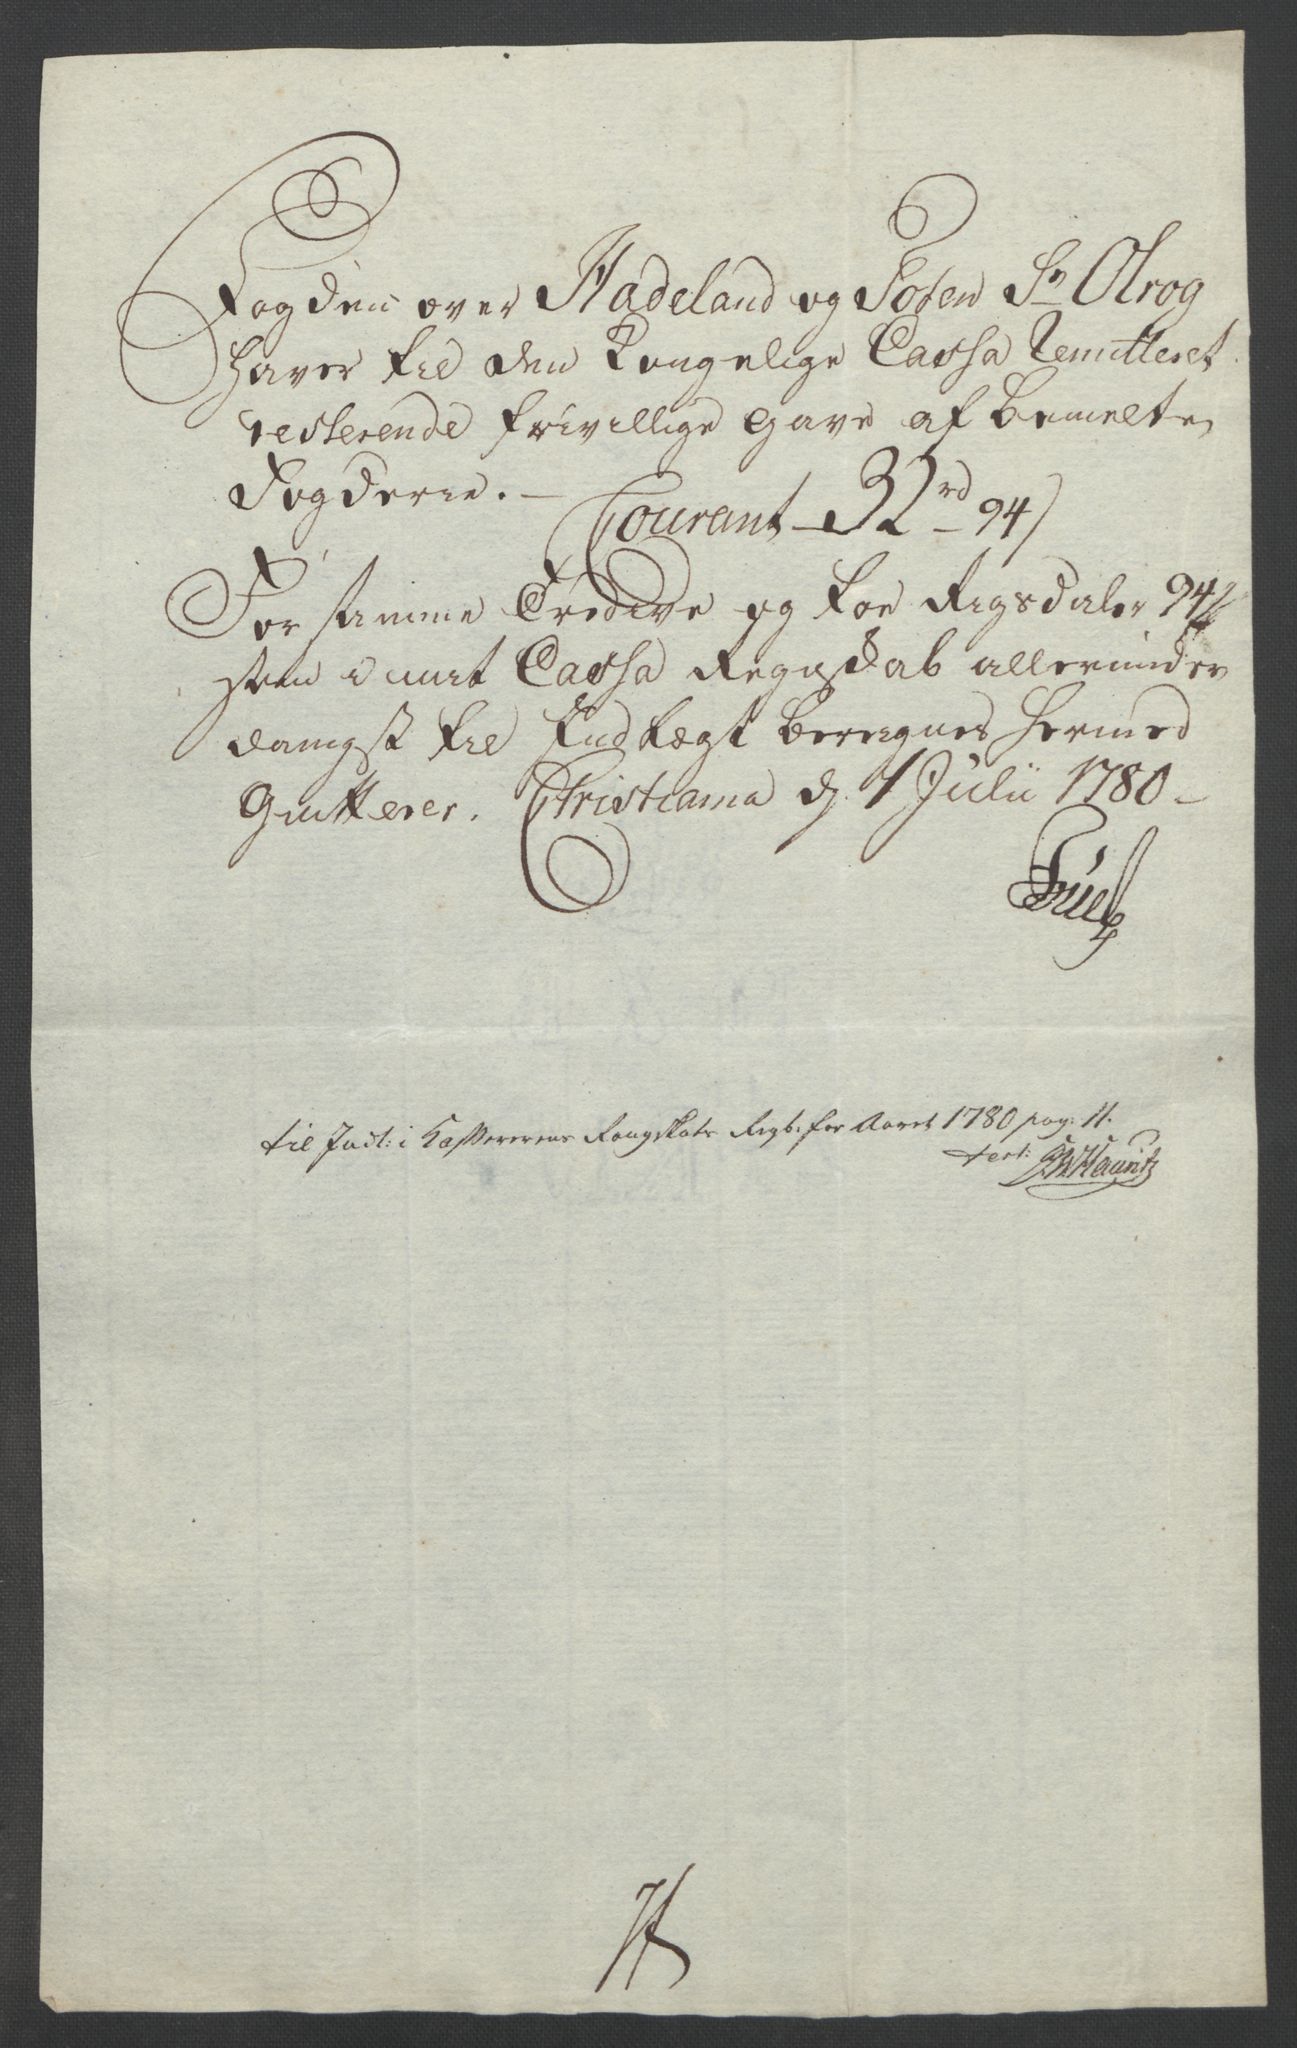 Fogden over Hadeland og Toten Sr Olrog
haver til den Kongelige Cassa Remitteret
resterende frivillige gave af bemelte
Fogderie. —
Courant — 32 rd — 94 s
For samme Tredive og toe Rigsdaler 94 s
som i mit Cassa Regnskab allerunder
danigst til Indtægt beregnes hermed
Quitterer. Christiania d. 1 Julii 1780 —
til Indt: i Kassererens Rangskats Regsk: for Aaret 1780 pag: 11.
test: